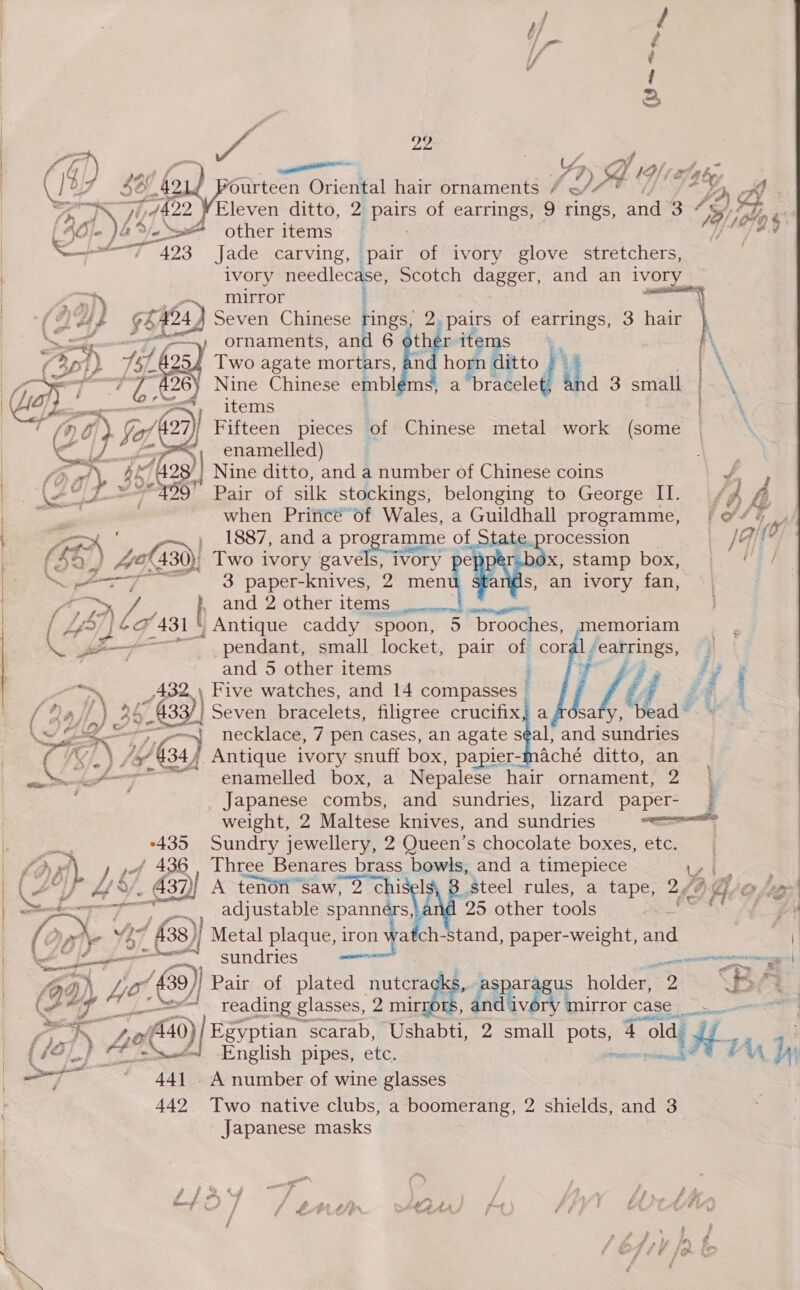 22
421 Fourteen Oriental hair ornaments
422 Eleven ditto, 2 pairs of earrings, 9 rings, and 3
other items
423 Jade carving, pair of ivory glove stretchers,
ivory needlecase, Scotch dagger, and an ivory
mirror
424 Seven Chinese rings, 2 pairs of earrings, 3 hair
ornaments, and 6 other items
425 Two agate mortars, and horn ditto
426 Nine Chinese emblems, a bracelet, and 3 small
items
427 Fifteen pieces of Chinese metal work (some
enamelled)
428 Nine ditto, and a number of Chinese coins
429 Pair of silk stockings, belonging to George II.
when Prince of Wales, a Guildhall programme,
1887, and a programme of State procession
430 Two ivory gavels, ivory pepper-box, stamp box,
3 paper-knives, 2 menu stands, an ivory fan,
and 2 other items
431 Antique caddy spoon, 5 brooches, memoriam
pendant, small locket, pair of coral earrings,
and 5 other items
432 Five watches, and 14 compasses
433 Seven bracelets, filigree crucifix, a rosary, bead
necklace, 7 pen cases, an agate seal, and sundries
434 Antique ivory snuff box, papier-mâché ditto, an
enamelled box, a Nepalese hair ornament, 2
Japanese combs, and sundries, lizard paper-
weight, 2 Maltese knives, and sundries
435 Sundry jewellery, 2 Queen's chocolate boxes, etc.
436 Three Benares brass bowls, and a timepiece
437 A tenon saw, 2 chisels, 3 steel rules, a tape, 2
adjustable spanners, and 25 other tools
438 Metal plaque, iron watch-stand, paper-weight, and
sundries
439 Pair of plated nutcracks, asparagus holder, 2
reading glasses, 2 mirrors, and ivory mirror case
440 Egyptian scarab, Ushabti, 2 small pots, 4 old
English pipes, etc.
441 A number of wine glasses
442 Two native clubs, a boomerang, 2 shields, and 3
Japanese masks